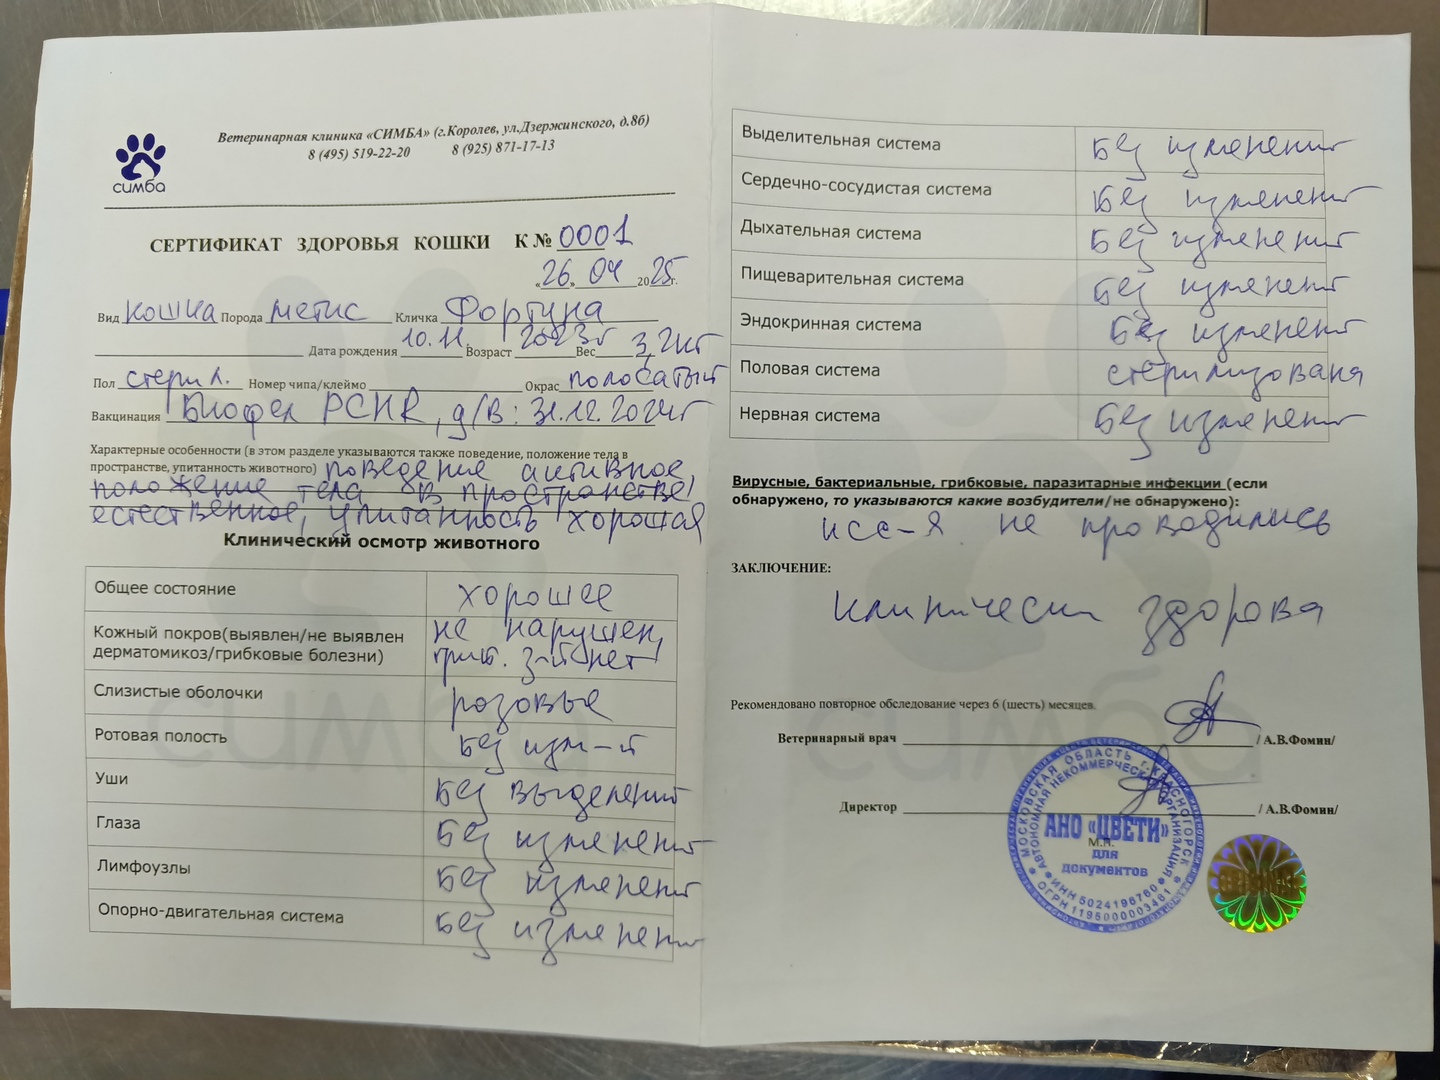 Ветеринарная клиника «СИМБА» (г.Королев, ул.Дзержинского, д.8б)
8 (495) 519-22-20 8 (925) 871-17-13
симба
СЕРТИФИКАТ ЗДОРОВЬЯ КОШКИ К № 0001
«26» 04 2025г.
Вид кошка Порода метис Кличка Фортуна
Дата рождения 10.11. Возраст 2023г Вес 3,2кг
Пол стерил. Номер чипа/клеймо Окрас полосатый
Вакцинация Биофел PCHR, д/в: 31.12.2024г
Характерные особенности (в этом разделе указываются также поведение, положение тела в
пространстве, упитанность животного) поведение активное,
положение тела в пространстве
естественное, упитанность хорошая
Клинический осмотр животного
Общее состояние хорошее
Кожный покров(выявлен/не выявлен не нарушен,
дерматомикоз/грибковые болезни) гриб. з-й нет
Слизистые оболочки розовые
Ротовая полость Без изм-й
Уши Без выделений
Глаза Без изменений
Лимфоузлы Без изменений
Опорно-двигательная система Без изменений
Выделительная система Без изменений
Сердечно-сосудистая система Без изменений
Дыхательная система Без изменений
Пищеварительная система Без изменений
Эндокринная система Без изменений
Половая система стерилизована
Нервная система Без изменений
Вирусные, бактериальные, грибковые, паразитарные инфекции (если
обнаружено, то указываются какие возбудители/не обнаружено):
исс-я не проводились
ЗАКЛЮЧЕНИЕ:
Клинически здорова
Рекомендовано повторное обследование через 6 (шесть) месяцев.
Ветеринарный врач / А.В.Фомин/
Директор / А.В.Фомин/
МОСКОВСКАЯ ОБЛАСТЬ г. КРАСНОГОРСК
АВТОНОМНАЯ НЕКОММЕРЧЕСКАЯ ОРГАНИЗАЦИЯ
АНО «ЦВЕТИ»
М.П.
для
документов
ИНН 5024196760
ОГРН 1195000003481